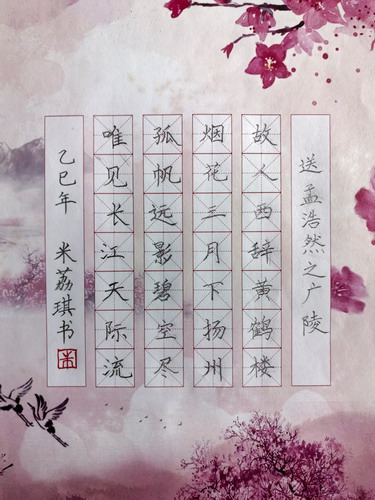 送孟浩然之广陵
故人西辞黄鹤楼
烟花三月下扬州
孤帆远影碧空尽
唯见长江天际流
乙巳年 米荔琪书
米